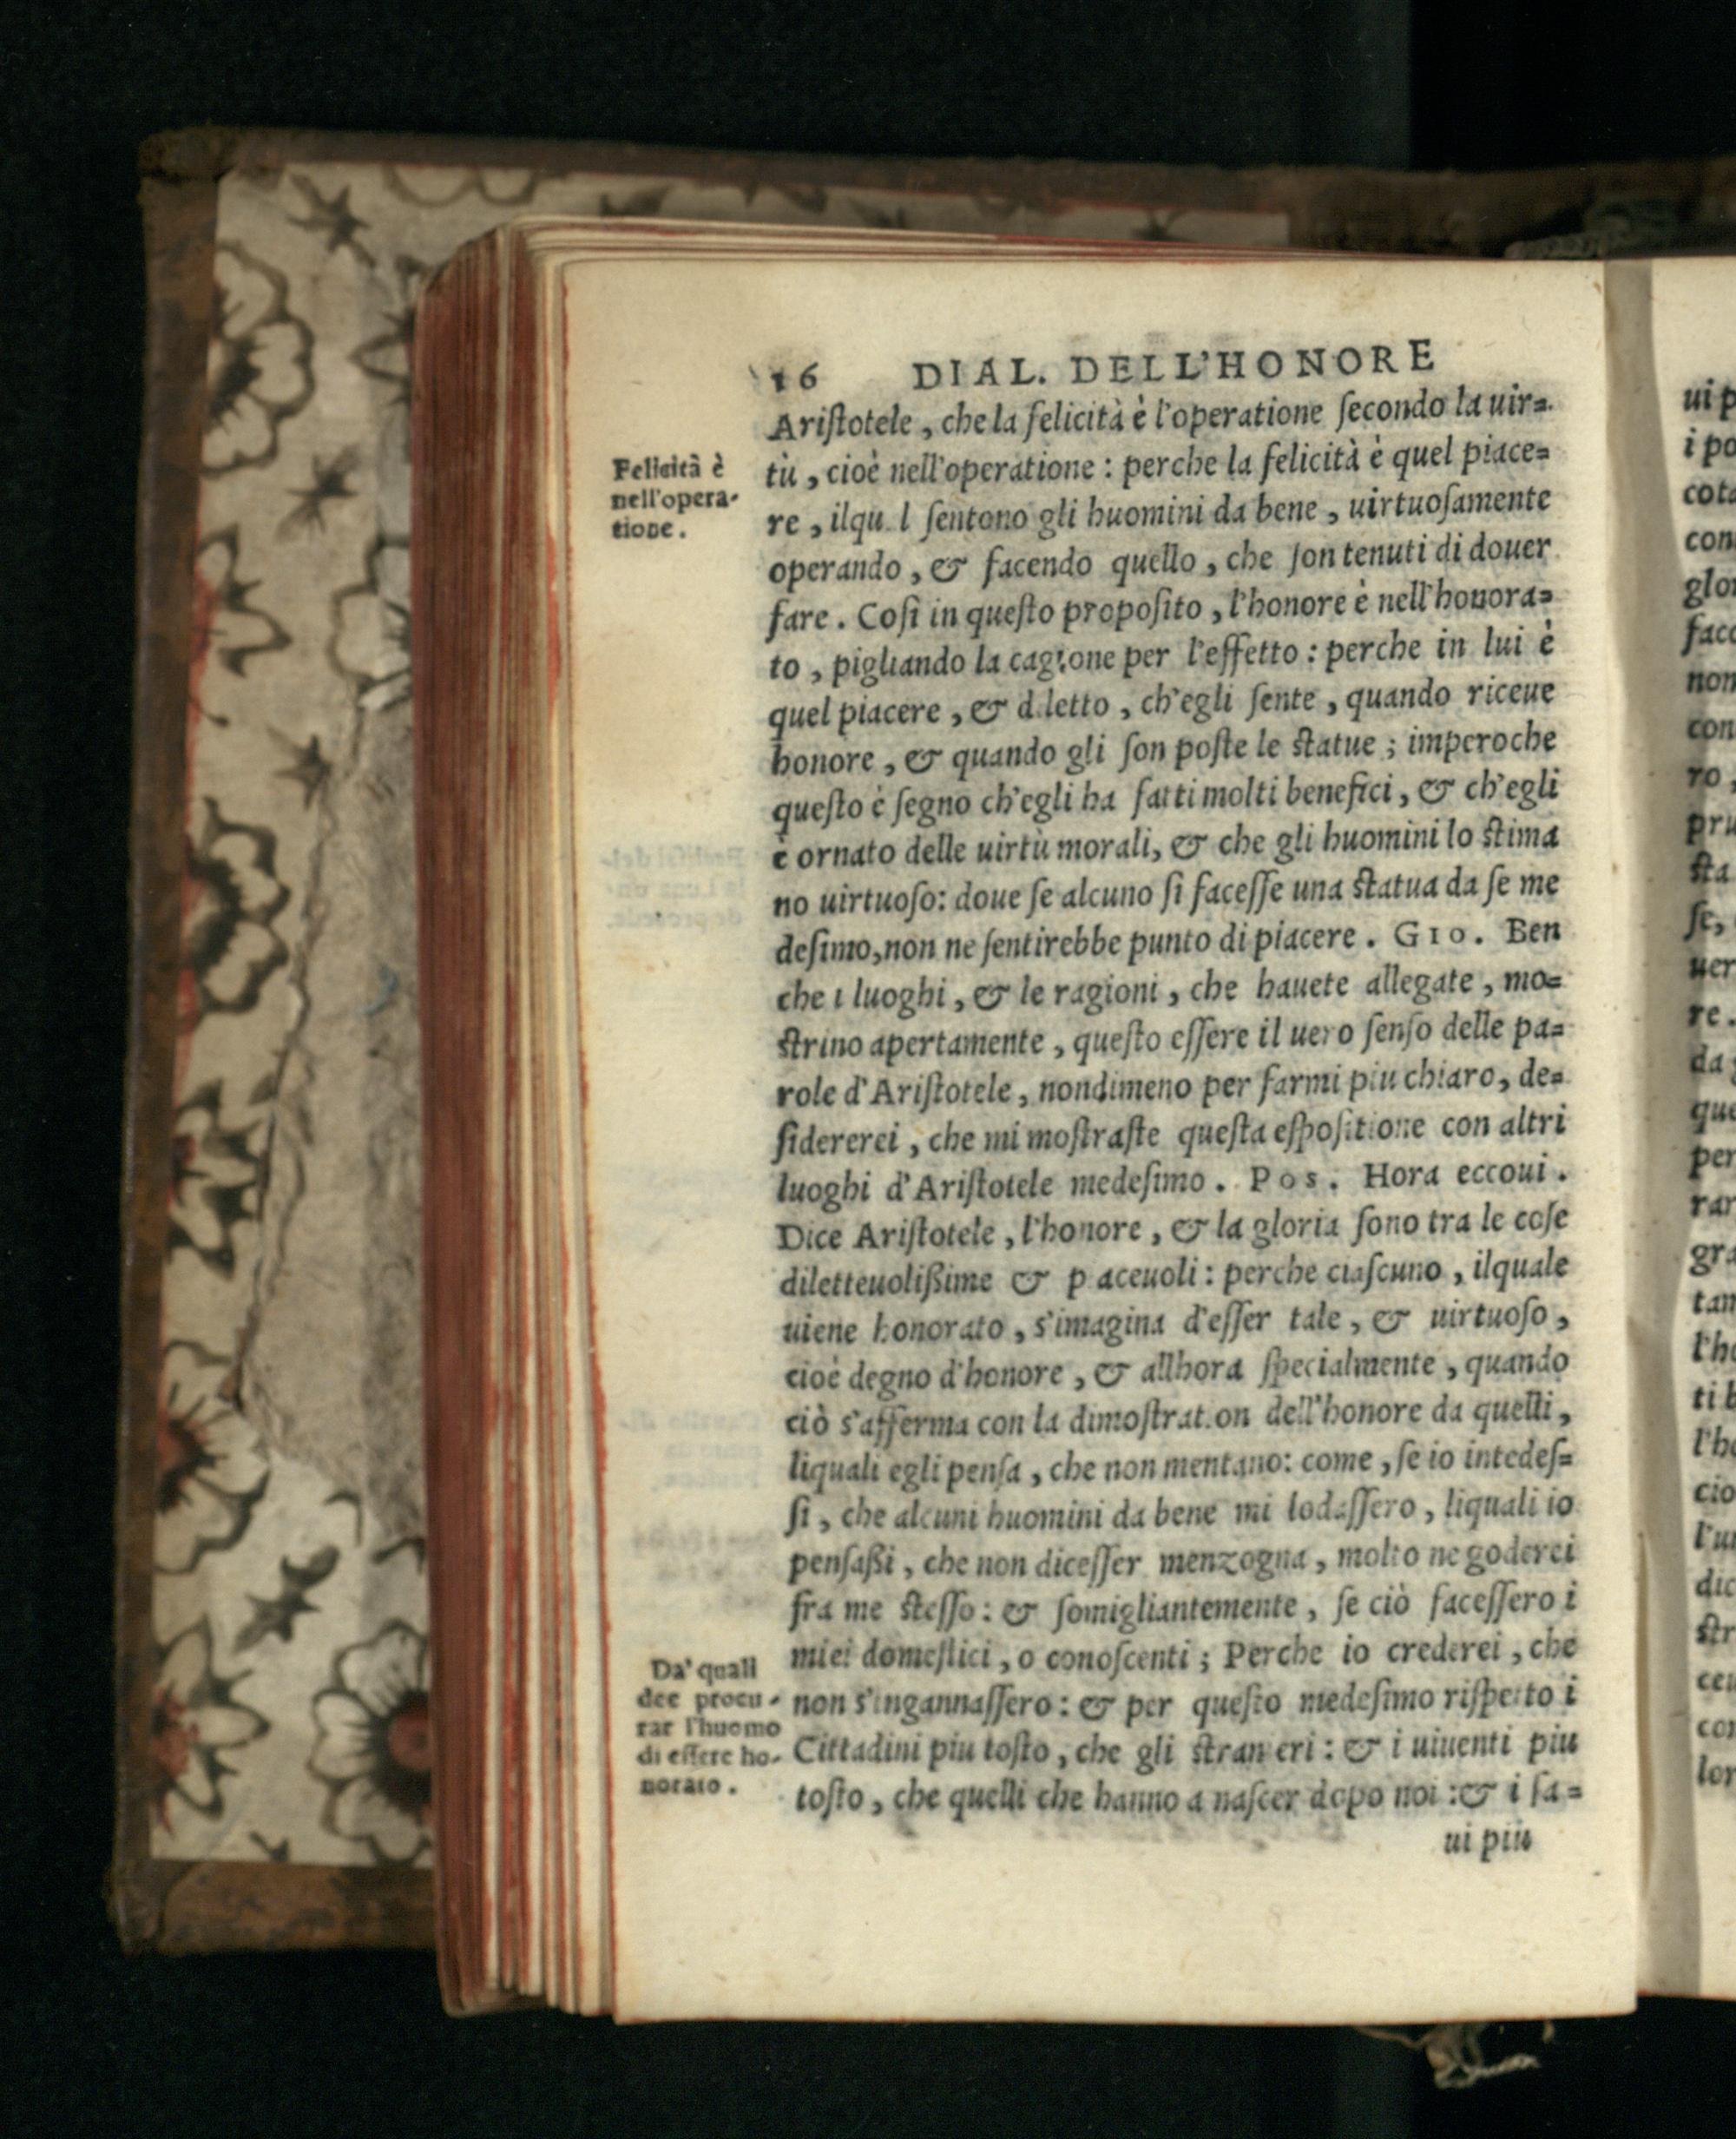 16 DIAL. DELL'HONORE
Ariſtotele, che la felicità è l'operatione ſecondo la uir=
tù, cioè nell'operatione: perche la felicità è quel piace=
re, ilqu l ſentono gli huomini da bene, uirtuoſamente
operando, & facendo quello, che ſon tenuti di douer
fare. Coſi in queſto propoſito, l'honore è nell'honora=
to, pigliando la cagione per l'effetto: perche in lui è
quel piacere, & d letto, ch'egli ſente, quando riceue
honore, & quando gli ſon poſte le ſtatue; imperoche
queſto è ſegno ch'egli ha fatti molti benefici, & ch'egli
è ornato delle uirtù morali, & che gli huomini lo ſtima
no uirtuoſo: doue ſe alcuno ſi faceſſe una ſtatua da ſe me
deſimo, non ne ſentirebbe punto di piacere. GIO. Ben
che i luoghi, & le ragioni, che hauete allegate, mo=
ſtrino apertamente, queſto eſſere il uero ſenſo delle pa=
role d'Ariſtotele, nondimeno per farmi piu chiaro, de=
ſidererei, che mi moſtraſte queſta eſpoſitione con altri
luoghi d'Ariſtotele medeſimo. POS. Hora eccoui.
Dice Ariſtotele, l'honore, & la gloria ſono tra le coſe
diletteuolißime & p aceuoli: perche ciaſcuno, ilquale
uiene honorato, s'imagina d'eſſer tale, & uirtuoſo,
cioè degno d'honore, & allhora ſpecialmente, quando
ciò s'afferma con la dimoſtrat.on dell'honore da quelli,
liquali egli penſa, che non mentano: come, ſe io intedeſ=
ſi, che alcuni huomini da bene mi lodaſſero, liquali io
penſaßi, che non diceſſer menzogna, molto ne goderei
fra me ſteſſo: & ſomigliantemente, ſe ciò faceſſero i
miei domeſtici, o conoſcenti; Perche io crederei, che
non s'ingannaſſero: & per queſto medeſimo riſpetto i
Cittadini piu toſto, che gli ſtran eri: & i uiuenti piu
toſto, che quelli che hanno a naſcer dopo noi: & i ſa=
ui piu
Felicità è
nell'opera-
tione.
Da' quali
dee procu-
rar l'huomo
di eſſere ho-
norato.
ui p
i po
cota
con
glor
facc
non
con
ro,
pru
ſta
ſe,
uer
re.
da
que
per
rar
gra
tan
l'ho
ti b
l'ho
cio
l'u
dic
ſtr
ceu
con
lor